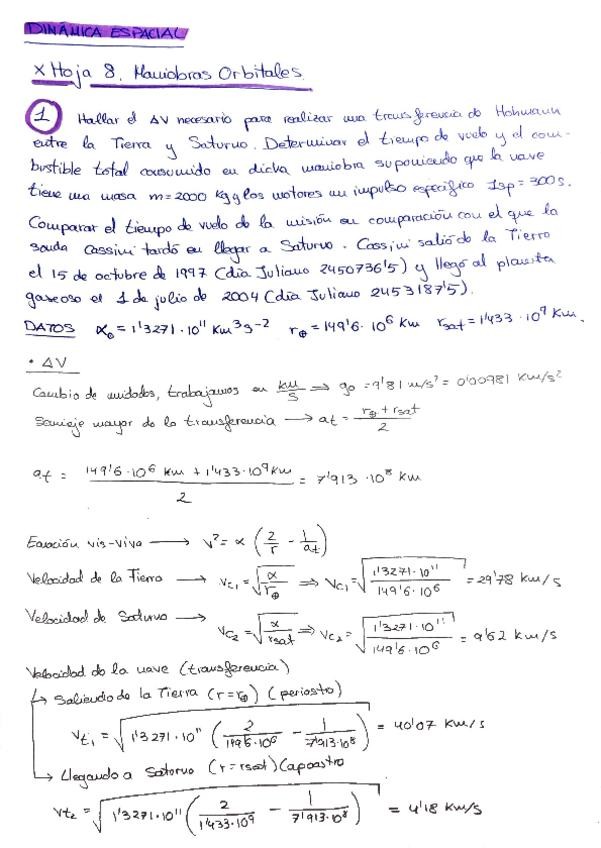 DINÁMICA ESPACIAL
x Hoja 8. Maniobras Orbitales.
1 Hallar el ΔV necesario para realizar una transferencia de Hohmann
entre la Tierra y Saturno. Determinar el tiempo de vuelo y el com-
bustible total consumido en dicha maniobra suponiendo que la nave
tiene una masa m=2000 kg y los motores un impulso específico Isp=300s.
Comparar el tiempo de vuelo de la misión en comparación con el que la
sonda Cassini tardó en llegar a Saturno. Cassini salió de la Tierra
el 15 de octubre de 1997 (día Juliano 2450736'5) y llegó al planeta
gaseoso el 1 de julio de 2004 (día Juliano 2453187'5).
DATOS α⊙ = 1'3271·10¹¹ km³s⁻² r⊕ = 149'6·10⁶ km rsat = 1'433·10⁹ km.
• ΔV
Cambio de unidades, trabajamos en km/s ⟹ g₀ = 9'81 m/s² = 0'00981 km/s²
Semieje mayor de la transferencia ⟶ at = (r⊕ + rsat)/2
at = (149'6·10⁶ km + 1'433·10⁹ km)/2 = 7'913·10⁸ km
Ecuación vis-viva ⟶ v² = α (2/r − 1/at)
Velocidad de la Tierra ⟶ vc₁ = √(α/r⊕) ⟹ vc₁ = √(1'3271·10¹¹/149'6·10⁶) = 29'78 km/s
Velocidad de Saturno ⟶ vc₂ = √(α/rsat) ⟹ vc₂ = √(1'3271·10¹¹/149'6·10⁶) = 9'62 km/s
Velocidad de la nave (transferencia)
↳ Saliendo de la Tierra (r=r⊕) (periastro)
vt₁ = √(1'3271·10¹¹ (2/149'6·10⁶ − 1/7'913·10⁸)) = 40'07 km/s
↳ Llegando a Saturno (r=rsat) (apoastro
vt₂ = √(1'3271·10¹¹ (2/1'433·10⁹ − 1/7'913·10⁸)) = 4'18 km/s